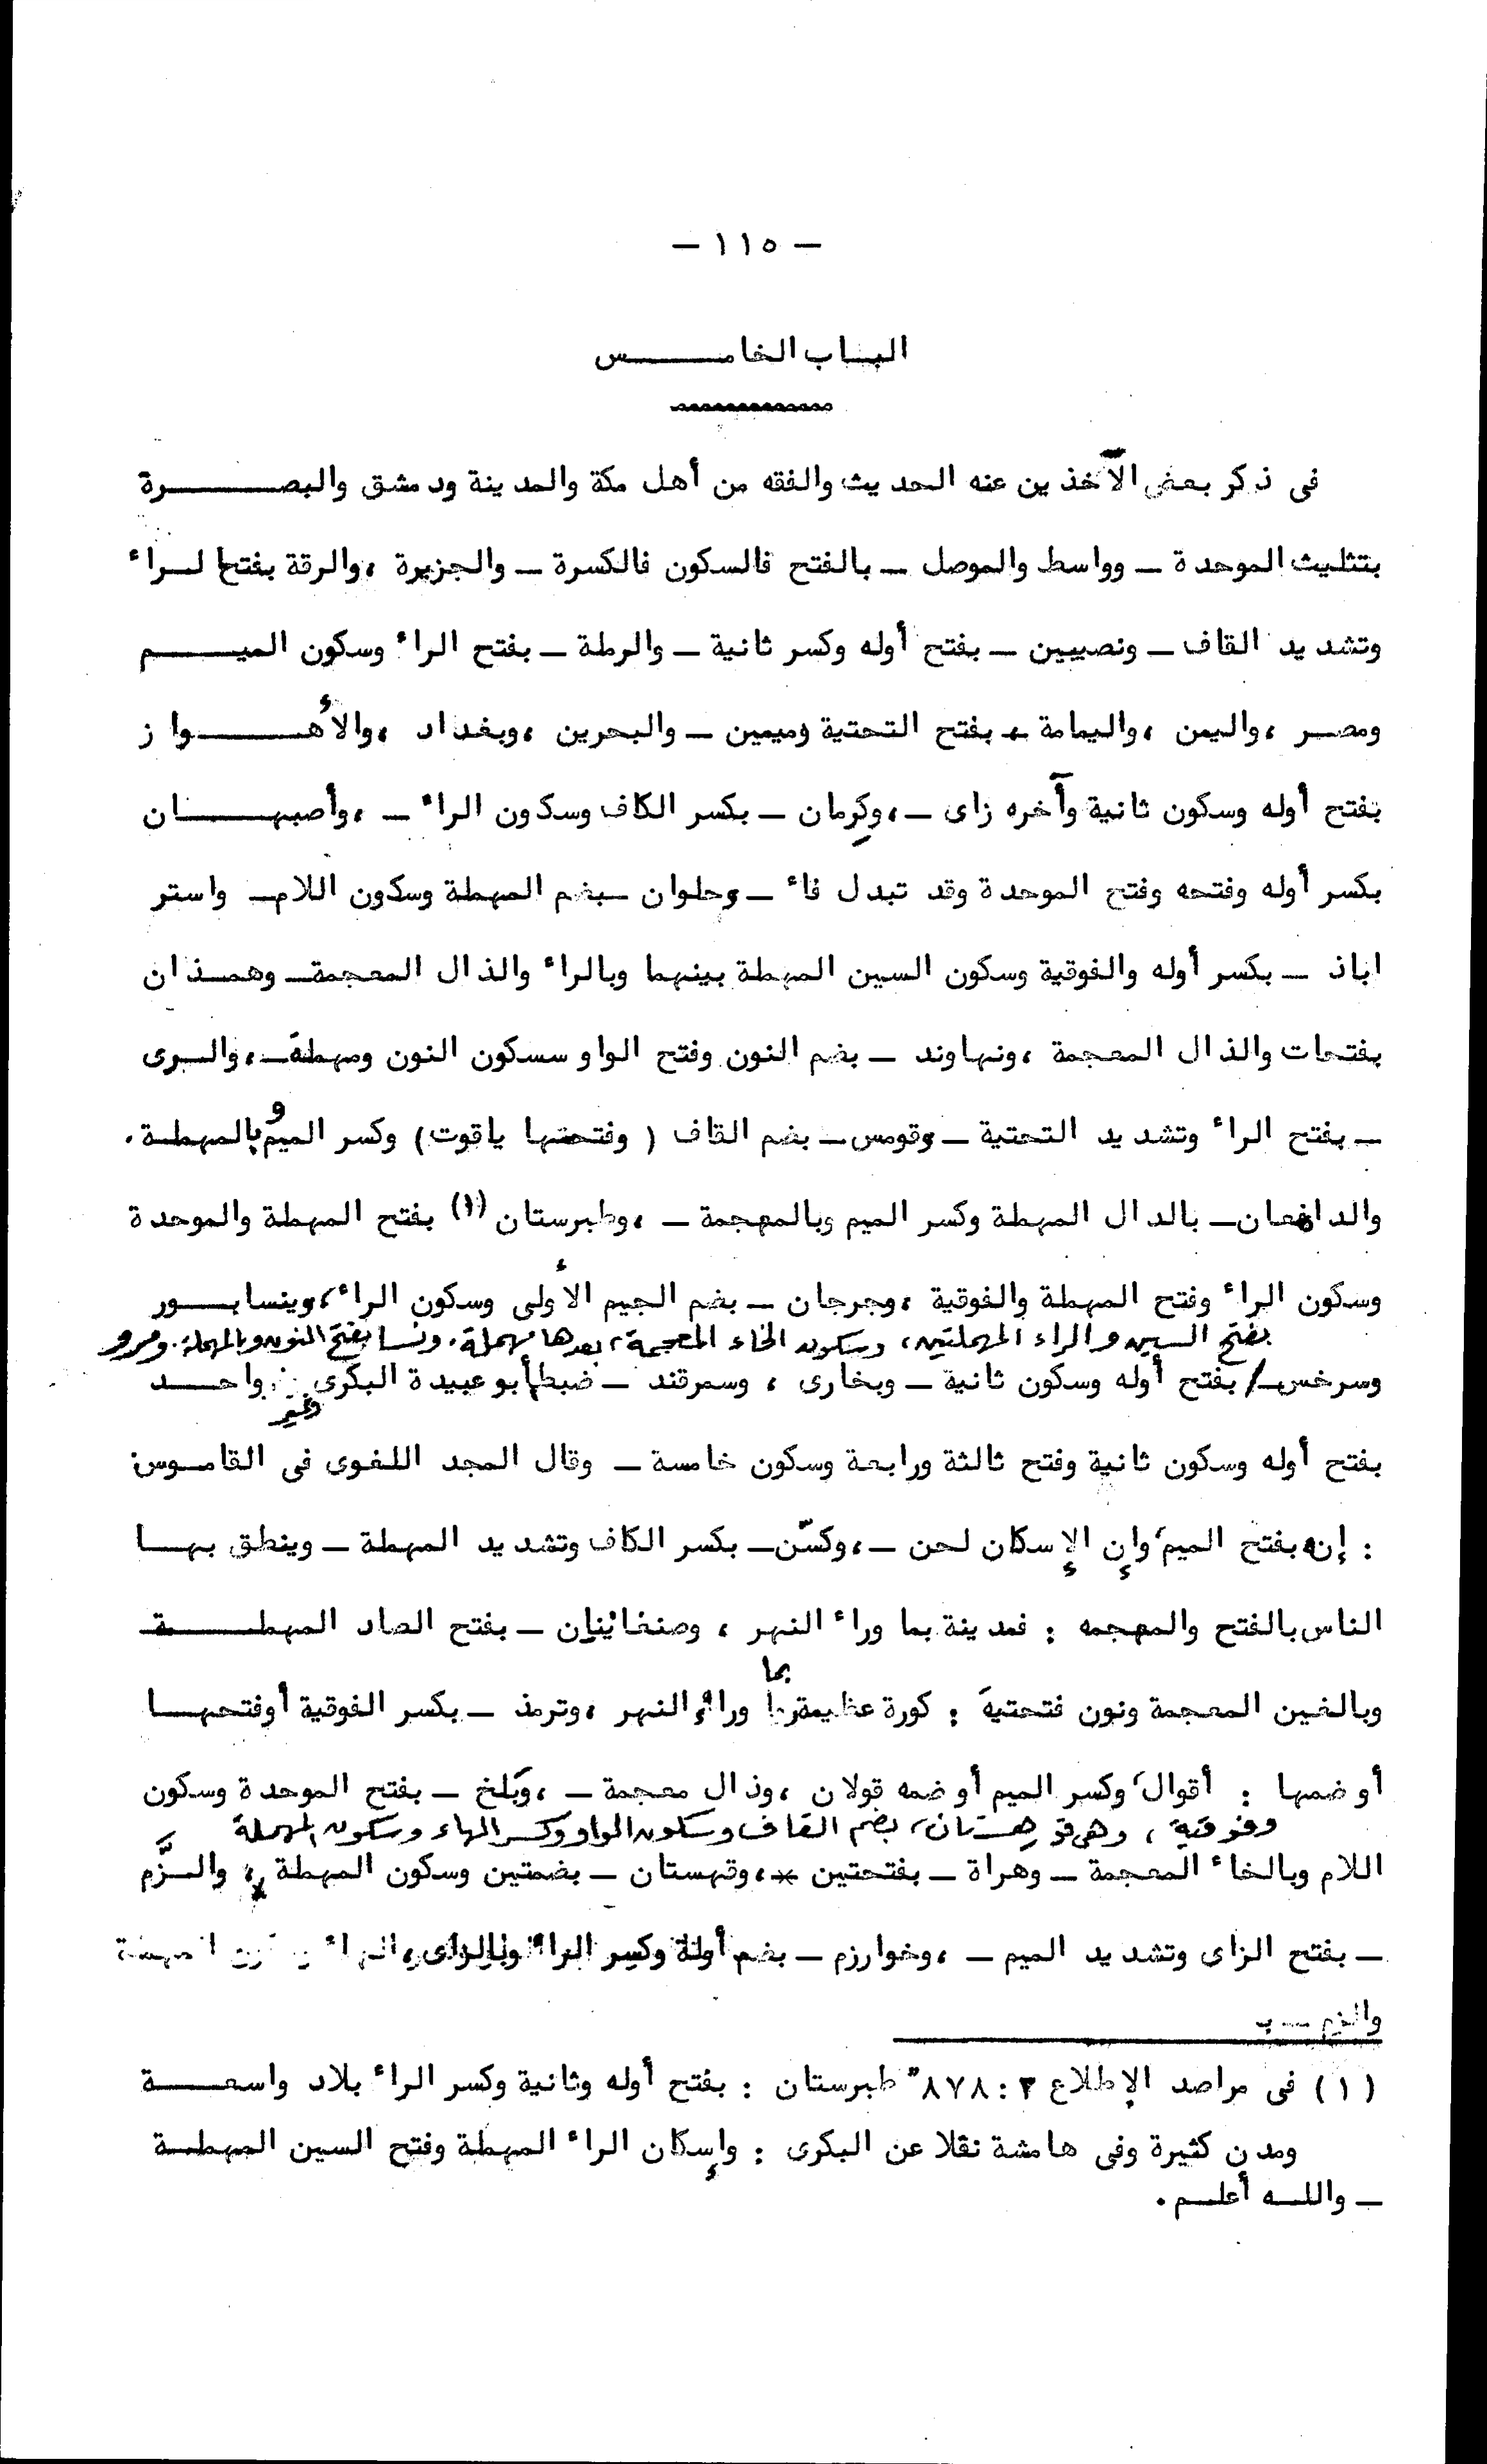 — ١١٥ —
الباب الخامس
فى ذكر بعض الآخذين عنه الحديث والفقه من أهل مكة والمدينة ودمشق والبصرة
بتثليث الموحدة — وواسط والموصل — بالفتح فالسكون فالكسرة — والجزيرة ، والرقة بفتح الراء
وتشديد القاف — ونصيبين — بفتح أوله وكسر ثانية — والرملة — بفتح الراء وسكون الميم
ومصر ، واليمن ، واليمامة — بفتح التحتية وميمين — والبحرين ، وبغداد ، والأهواز
بفتح أوله وسكون ثانية وآخره زاى — ، وكرمان — بكسر الكاف وسكون الراء — ، وأصبهان
بكسر أوله وفتحه وفتح الموحدة وقد تبدل فاء — وحلوان — بضم المهملة وسكون اللام — واستر
اباذ — بكسر أوله والفوقية وسكون السين المهملة بينهما وبالراء والذال المعجمة — وهمذان
بفتحات والذال المعجمة ، ونهاوند — بضم النون وفتح الواو سسكون النون ومهملة — ، والرى
— بفتح الراء وتشديد التحتية — وقومس — بضم القاف ( وفتحتها ياقوت ) وكسر الميم وبالمهملة .
والدامغان — بالدال المهملة وكسر الميم وبالمعجمة — ، وطبرستان (١) بفتح المهملة والموحدة
وسكون الراء وفتح المهملة والفوقية ، وجرجان — بضم الجيم الأولى وسكون الراء ، وينسابور
بفتح السين والراء المهملتين ، وسكون الخاء المعجمة ، بعدها مهملة . ونسا بفتح النون وبالمهملة . ومرو
وسرخس / بفتح أوله وسكون ثانية — وبخارى ، وسمرقند — ضبط أبو عبيدة البكرى وغير واحد
بفتح أوله وسكون ثانية وفتح ثالثة ورابعة وسكون خامسة — وقال المجد اللغوى فى القاموس
: إنه بفتح الميم وإن الإسكان لحن — ، وكسّن — بكسر الكاف وتشديد المهملة — وينطق بها
الناس بالفتح والمعجمه : فمدينة بما وراء النهر ، وصنغانيان — بفتح الصاد المهملة
وبالغين المعجمة ونون فتحتية : كورة عظيمة بما وراء النهر ، وترمذ — بكسر الفوقية أوفتحها
أو ضمها : أقوال ، وكسر الميم أو ضمه قولان ، وذال معجمة — ، وبَلخ — بفتح الموحدة وسكون
وفوقية ، وهى قوهستان ، بضم القاف وسكون الواو وكسر الهاء وسكون المهملة
اللام وبالخاء المعجمة — وهراة — بفتحتين — ، وقهستان — بضمتين وسكون المهملة ، والزَّم
— بفتح الزاى وتشديد الميم — ، وخوارزم — بضم أولة وكسر الراء وبالزاى ،
(١) فى مراصد الإطلاع ٢ : ٨٧٨ " طبرستان : بفتح أوله وثانية وكسر الراء بلاد واسعة
ومدن كثيرة وفى هامشة نقلا عن البكرى : وإسكان الراء المهملة وفتح السين المهملة
— والله أعلم .